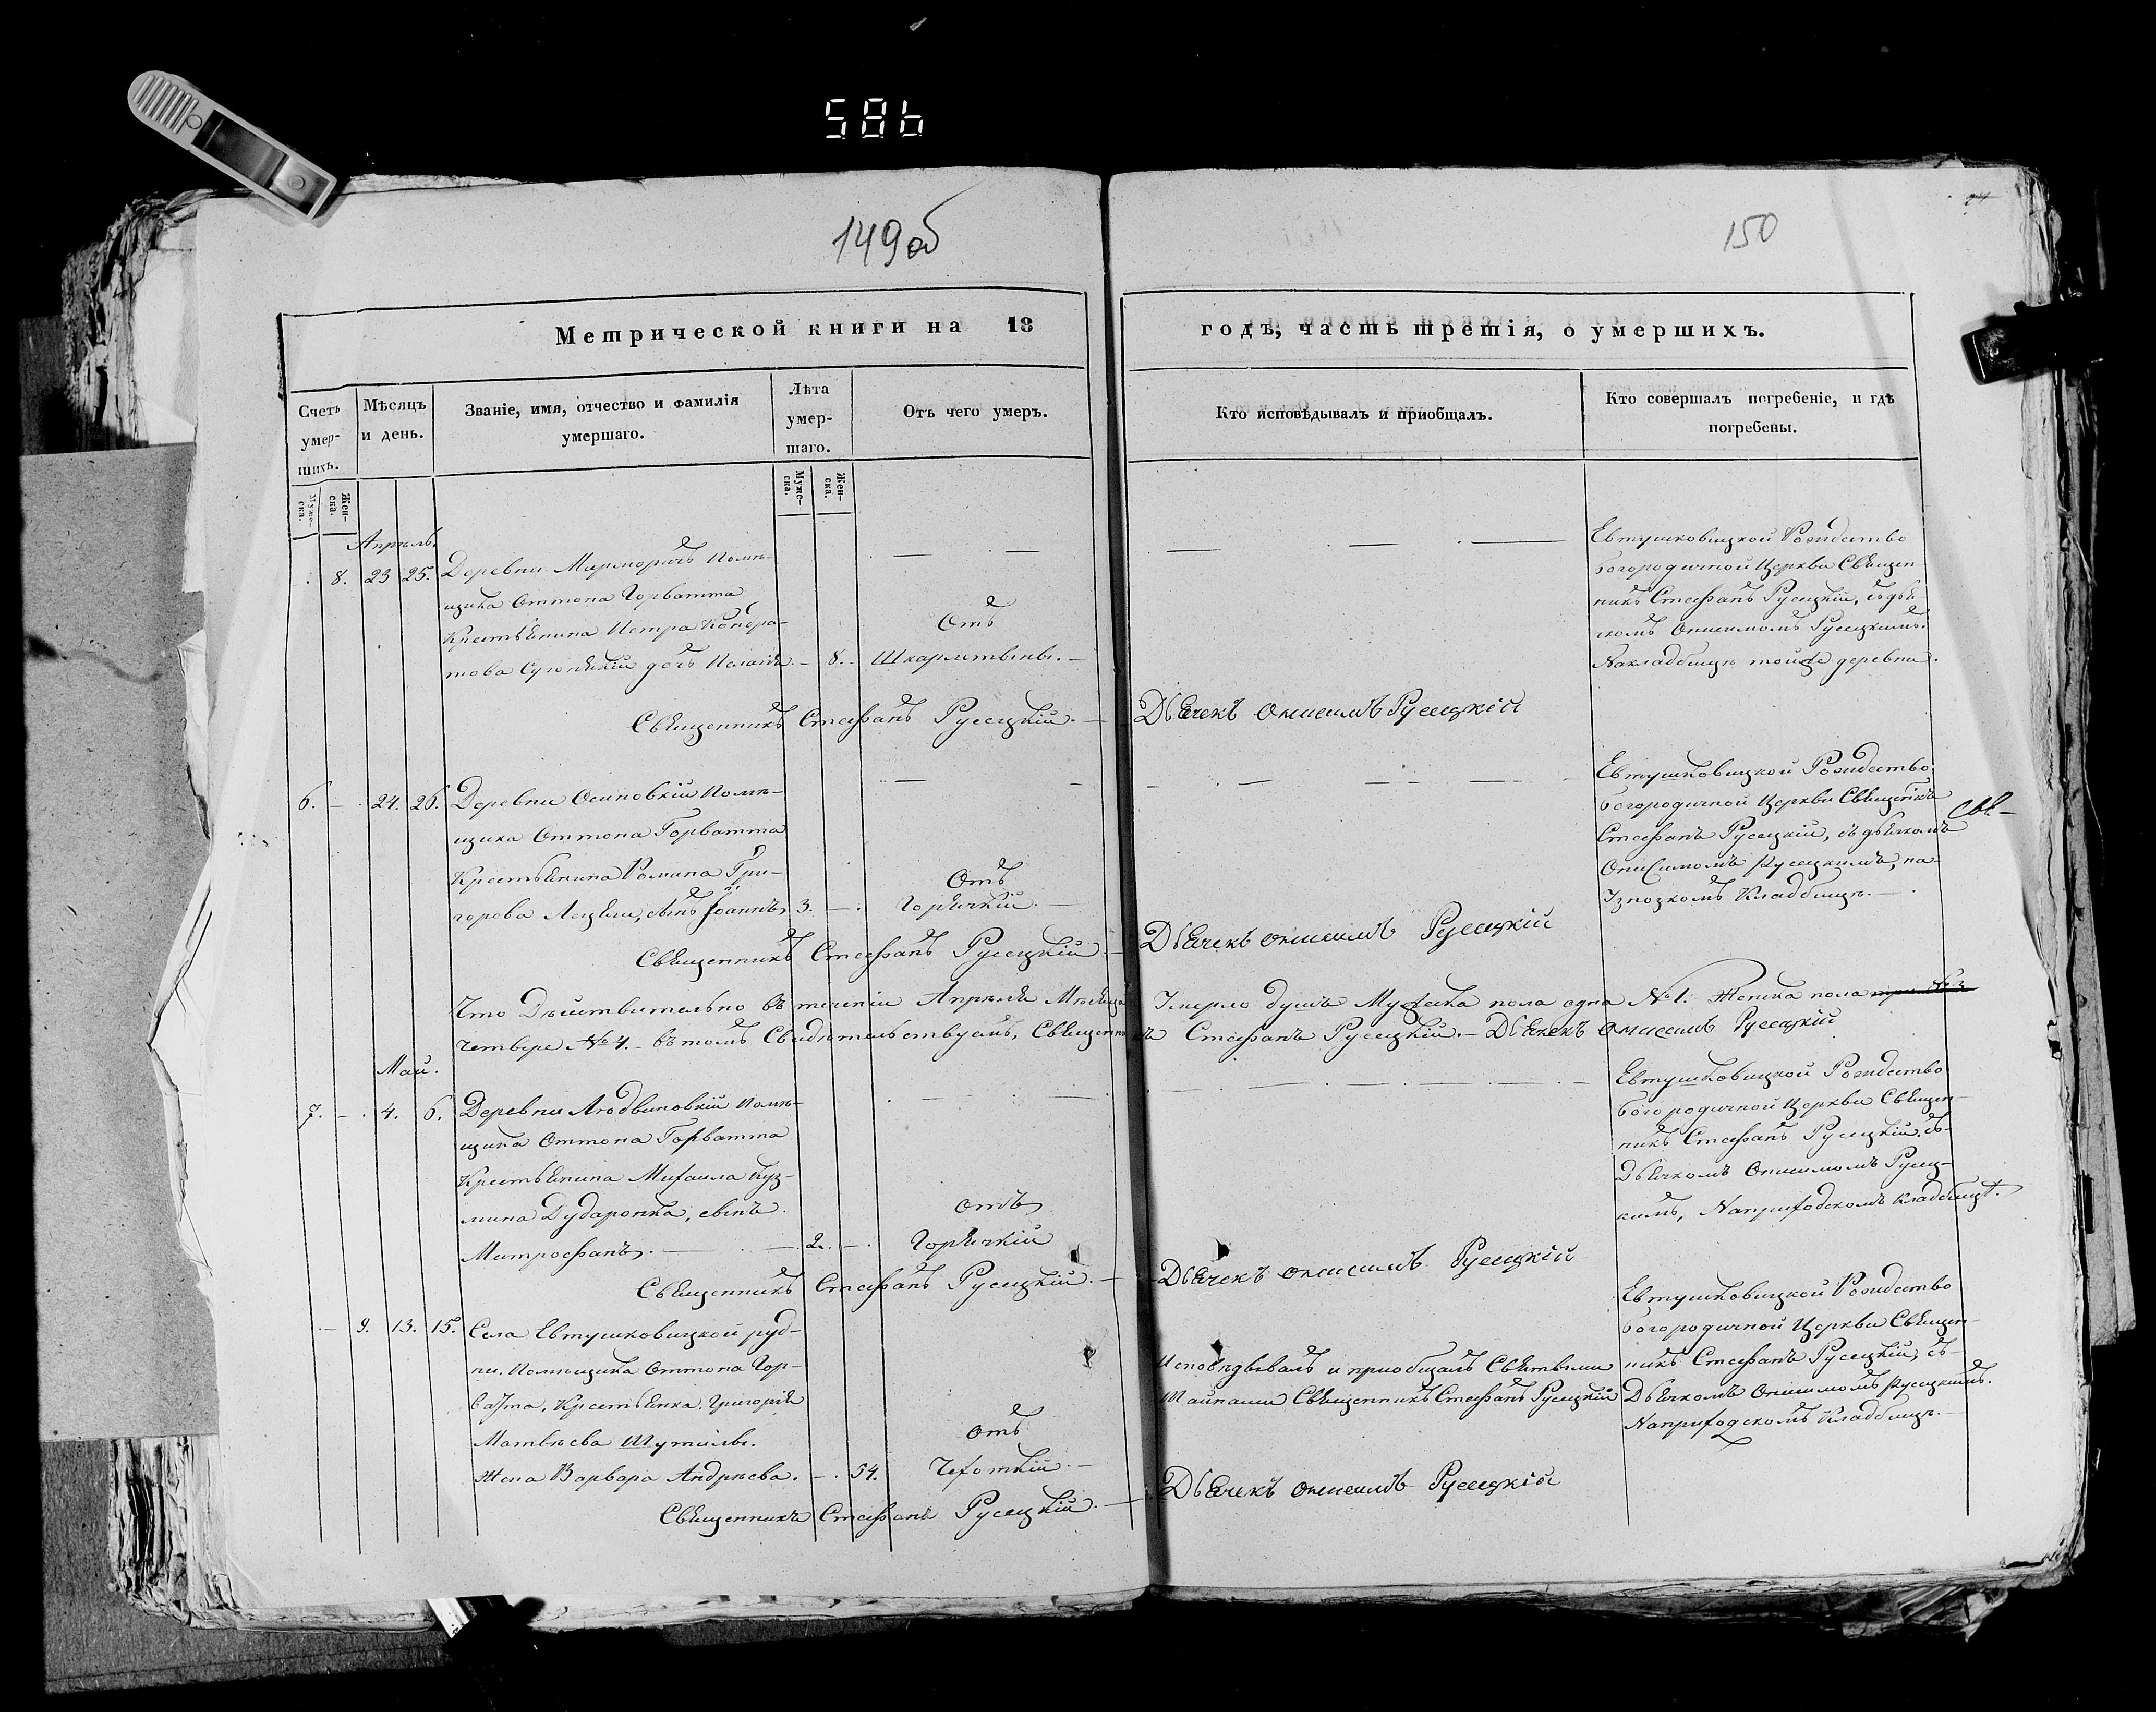 586
149об
150
Метрической книги на 18
годъ, часть третія, о умершихъ.
Счетъ умер-шихъ.
Мѣсяцъ и день.
Званіе, имя, отчество и фамилія умершаго.
Лѣта умер-шаго.
Отъ чего умеръ.
Кто исповѣдывалъ и приобщалъ.
Кто совершалъ погребеніе, и гдѣ погребены.
Муже-ска.
Жен-ска.
Муже-ска.
Жен-ска.
Апрѣль.
8. 23 25. Деревни Марморичъ помѣ-
щика Оттона Горватта
Крестьянина Петра
дочь Пелагія. – 8.
Отъ
Шкарлатыны. –
Евтушковицкой Рождество
богородичной Церкви Священ
никъ Стефанъ Русецкій, съ дья
чкомъ Онисимомъ Русецкимъ.
На кладбищѣ тойже деревни.
Священникъ Стефанъ Русецкій. –
Дьячекъ Онисимъ Русецкій
6. – 24. 26. Деревни Осиповкій помѣ-
щика Оттона Горватта
Крестьянина Романа Гри-
горова сынъ Іоаннъ, 3. –
Отъ
Горячкій. –
Евтушковицкой Рождество
богородичной Церкви Священникъ
Стефанъ Русецкій, съ дьячкомъ
Онисимомъ Русецкимъ, на
Кладбищѣ. –
Священникъ Стефанъ Русецкій. –
Дьячекъ Онисимъ Русецкій
Что Дѣйствительно въ теченіи Апрѣля Мѣсяца Умерло душъ Мужеска пола одна №1. Женска пола
четвере №4. – въ томъ Свидѣтельствуемъ, Священникъ Стефанъ Русецкій. – Дьячекъ Онисимъ Русецкій
Май.
7. – 4. 6. Деревни Людвиновкій помѣ-
щика Оттона Горватта
Крестьянина Михаила Куз-
мина Дударонка, сынъ
Митрофанъ. – 2. –
отъ
Горячкій
Евтушковицкой Рождество
богородичной Церкви Священ-
никъ Стефанъ Русецкій, съ-
Дьячкомъ Онисимомъ Русец-
кимъ, На приходскомъ кладбищѣ.
Священникъ Стефанъ Русецкій. –
Дьячекъ Онисимъ Русецкій
– 9. 13. 15. Села Евтушковицкой руд-
ни, помѣщика Оттона Гор-
ватта, Крестьянка, Григорія
Матвѣева Шутилы.
жена Варвара Андрѣева. – 54.
отъ
Чехоткій. –
Исповѣдывалъ и приобщалъ Святыми
Тайнами Священникъ Стефанъ Русецкій
Евтушковицкой Рождество
богородичной Церкви Священ-
никъ Стефанъ Русецкій, съ-
Дьячкомъ Онисимомъ Русецкимъ.
На приходскомъ Кладбищѣ. –
Священникъ Стефанъ Русецкій. –
Дьячекъ Онисимъ Русецкій